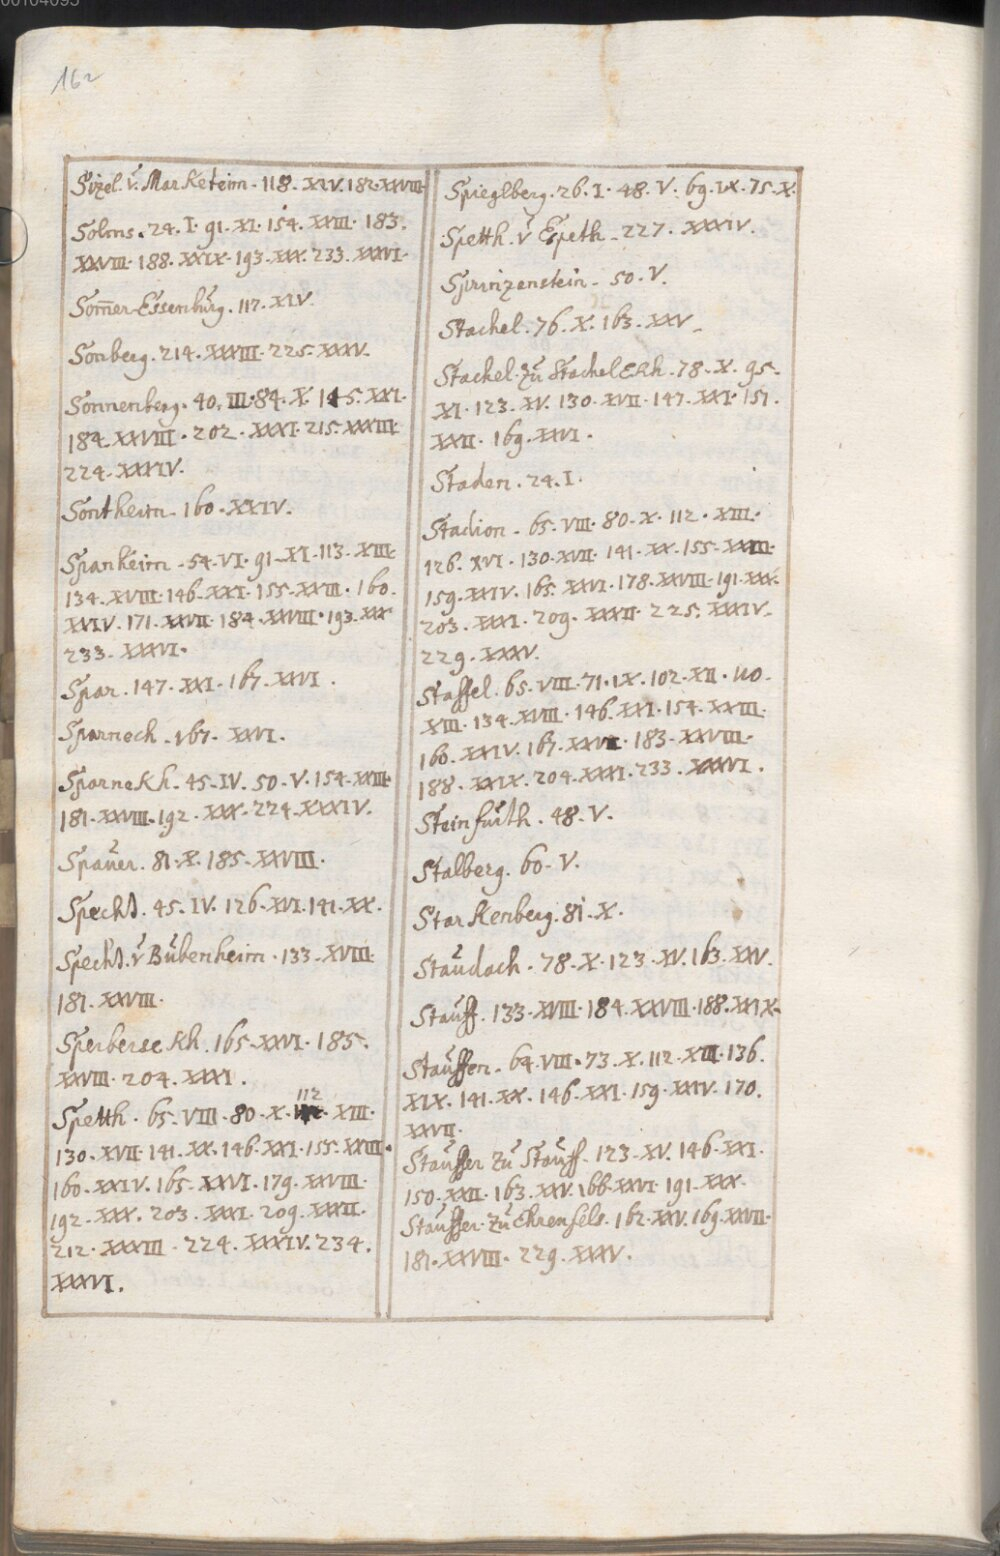 00104095
162
Sizel. v. Marketeim - 118. XIV. 182. XXVIII
Solms. 24. I. 91. XI. 154. XXIII. 183.
XXVIII. 188. XXIX. 193. XXX. 233. XXXVI.
Som̄er-Essenbŭrg. 117. XIV.
Sonberg. 214. XXXIII. 225. XXXV.
Sonnenberg. 40. III. 84. X. 145. XXI.
184. XXVIII. 202. XXXI. 215. XXXIII.
224. XXXIV.
Sontheim - 160. XXIV.
Spanheim - 54. VI. 91. XI. 113. XIII.
134. XVIII. 146. XXI. 155. XXIII. 160.
XXIV. 171. XXVII. 184. XXVIII. 193. XXX
233. XXXVI.
Spar. 147. XXI. 167. XXVI.
Sparnech. 167. XXVI.
Sparnekh. 45. IV. 50. V. 154. XXIII.
181. XXVIII. 192. XXX. 224. XXXIV.
Spaŭer. 81. X. 185. XXVIII.
Specht. 45. IV. 126. XVI. 141. XX.
Specht. v Bŭbenheim. 133. XVIII.
181. XXVIII.
Sperbersekh. 165. XXVI. 185.
XXVIII. 204. XXXI.
Spetth. 65. VIII. 80. X. 112 XIII.
130. XVII. 141. XX. 146. XXI. 155. XXIII.
160. XXIV. 165. XXVI. 179. XXVIII.
192. XXX. 203. XXXI. 209. XXXII.
212. XXXIII. 224. XXXIV. 234.
XXXVI.
Spieglberg. 26. I. 48. V. 69. IX. 75. X.
Spetth. v Espeth. 227. XXXIV.
Sprinzenstein - 50. V.
Stachel. 76. X. 163. XXV.
Stachel zŭ Stachelekh. 78. X. 95.
XI. 123. XV. 130. XVII. 147. XXI. 151.
XXII. 169. XXVI.
Staden. 24. I.
Stadion - 65. VIII. 80. X. 112. XIII.
126. XVI. 130. XVII. 141. XX. 155. XXIII.
159. XXIV. 165. XXVI. 178. XXVIII. 191. XXX.
203. XXXI. 209. XXXII. 225. XXXIV.
229. XXXV.
Staffel. 65. VIII. 71. IX. 102. XII. 110.
XIII. 134. XVIII. 146. XXI. 154. XXIII.
160. XXIV. 167. 183. XXVIII.
188. XXIX. 204. XXXI. 233. XXXVI.
Steinfŭrth. 48. V.
Stalberg. 60. V.
Starkenberg. 81. X.
Staŭdach. 78. X. 123. XV. 163. XXV.
Staŭff. 133. XVIII. 184. XXVIII. 188. XXIX.
Staŭffen. 64. VIII. 73. X. 112. XIII. 136.
XIX. 141. XX. 146. XXI. 159. XXIV. 170.
XXVII.
Staŭffer zŭ Staŭff. 123. XV. 146. XXI.
150. XXII. 163. XXV. 166. XXVI. 191. XXX.
Staŭffer zŭ Ehrenfels. 162. XXV. 169. XXVII.
181. XXVIII. 229. XXXV.